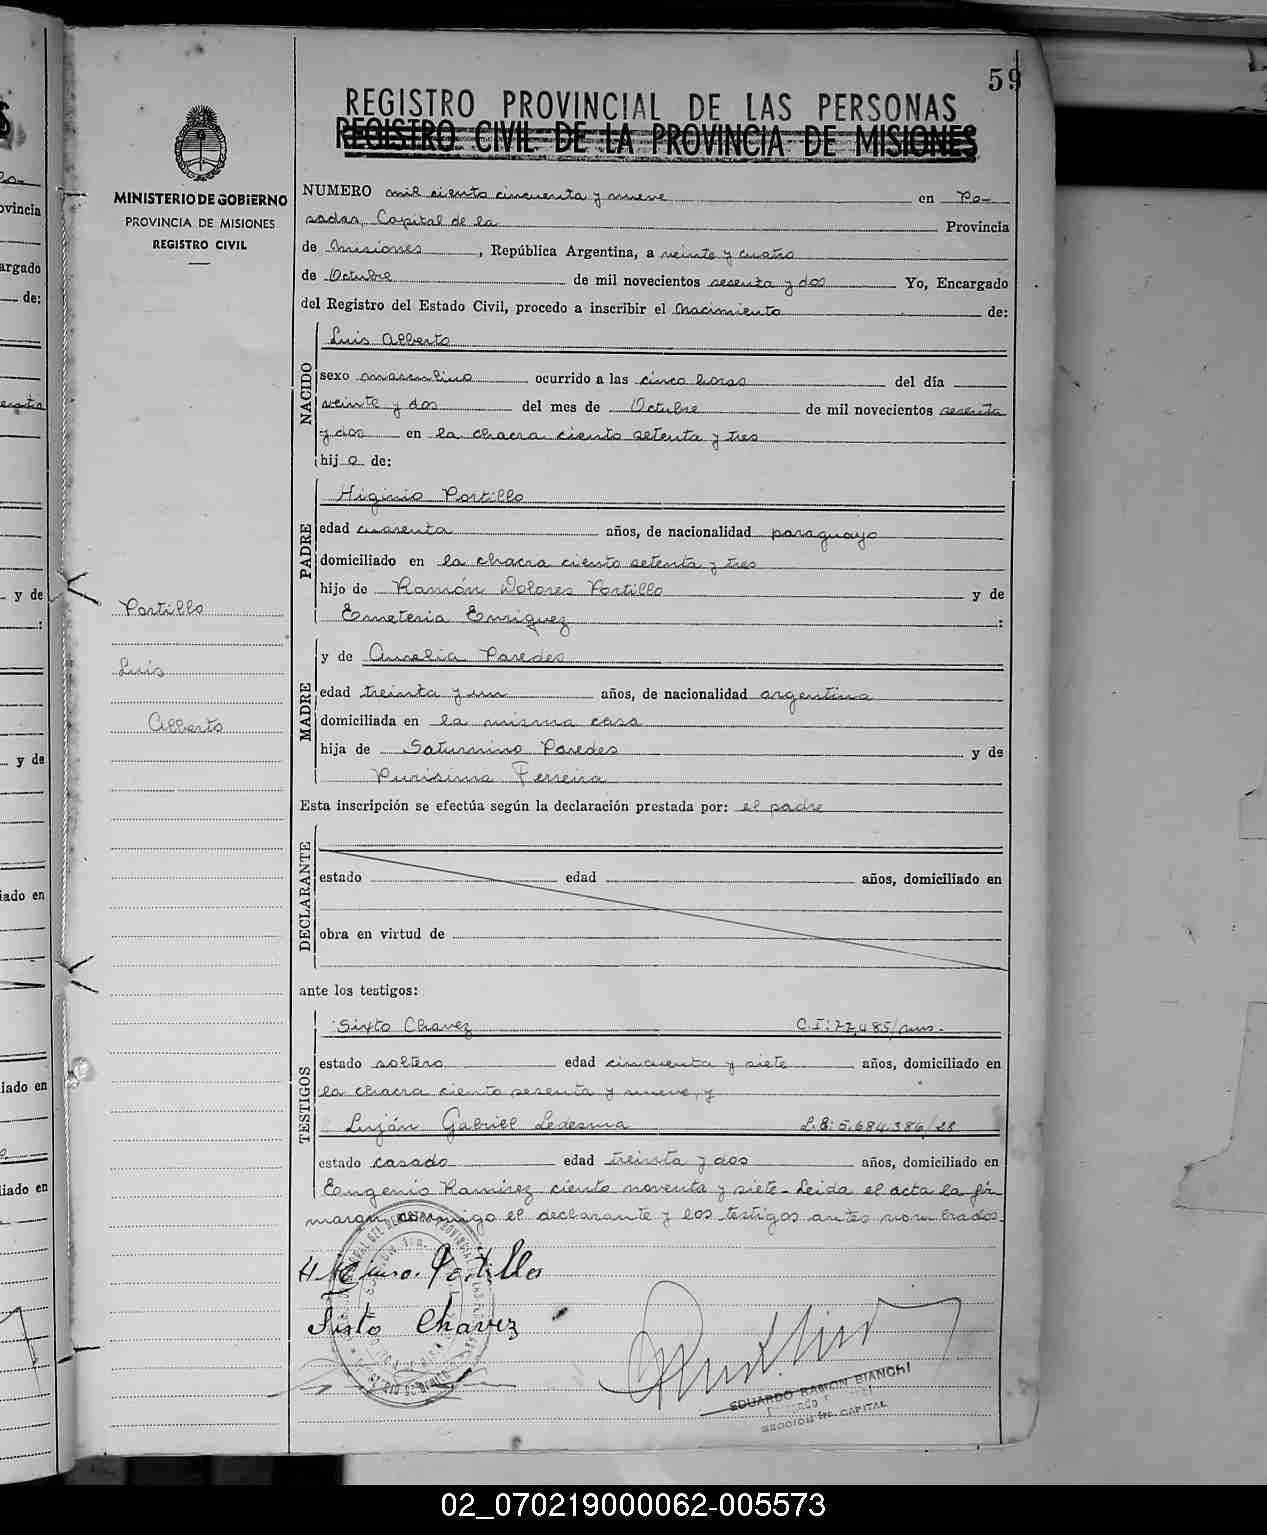 59
REGISTRO PROVINCIAL DE LAS PERSONAS
REGISTRO CIVIL DE LA PROVINCIA DE MISIONES
MINISTERIO DE GOBIERNO
PROVINCIA DE MISIONES
REGISTRO CIVIL
NUMERO mil ciento cincuenta y nueve en Po-
sadas, Capital de la Provincia
de Misiones, República Argentina, a veinte y cuatro
de Octubre de mil novecientos sesenta y dos Yo, Encargado
del Registro del Estado Civil, procedo a inscribir el Nacimiento de:
NACIDO
Luis Alberto
sexo masculino ocurrido a las cinco horas del día
veinte y dos del mes de Octubre de mil novecientos sesenta
y dos en la chacra ciento setenta y tres
hijo de:
PADRE
Higinio Portillo
edad cuarenta años, de nacionalidad paraguayo
domiciliado en la chacra ciento setenta y tres
hijo de Ramón Dolores Portillo y de
Emeteria Enriquez :
Portillo
Luis
Alberto
MADRE
y de Aurelia Paredes
edad treinta y un años, de nacionalidad argentina
domiciliada en la misma casa
hija de Saturnino Paredes y de
Purisima Ferreira
Esta inscripción se efectúa según la declaración prestada por: el padre
DECLARANTE
estado edad años, domiciliado en
obra en virtud de
ante los testigos:
TESTIGOS
Sixto Chavez C.I: 77,485/mns.
estado soltero edad cincuenta y siete años, domiciliado en
la chacra ciento sesenta y nueve, y
Luján Gabriel Ledesma L.E: 5.684.386/28
estado casado edad treinta y dos años, domiciliado en
Eugenio Ramirez ciento noventa y siete - Leida el acta la fir
maron conmigo el declarante y los testigos antes nombrados.
Portillo
Sixto Chavez
EDUARDO RAMON BIANCHI
SECCION CAPITAL
02_070219000062-005573